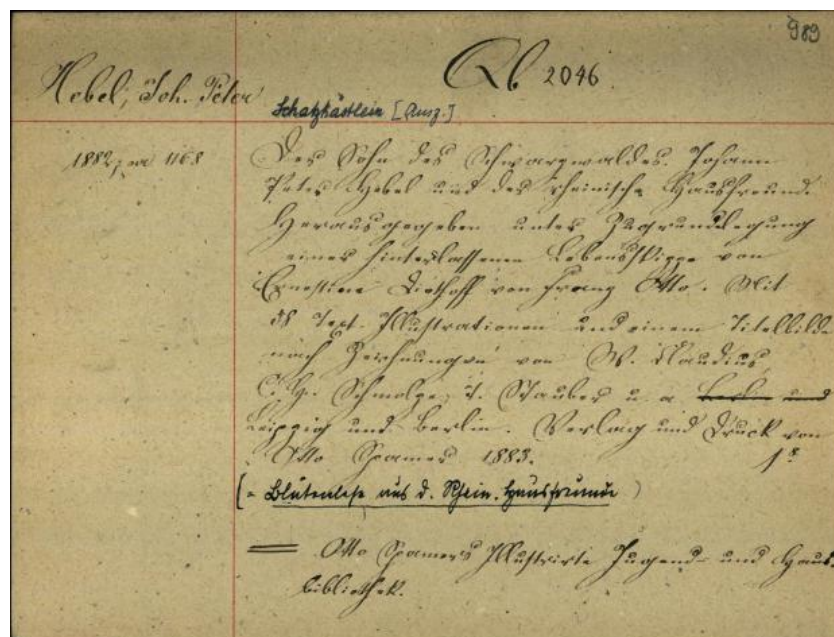 989
Qb 2046
Hebel, Joh. Peter
Schatzkästlein [Ausz.]
1882, 1168
Der Sohn des Schwarzwaldes. Johann
Peter Hebel und der rheinische Hausfreund.
Herausgegeben unter Zugrundlegung
einer hinterlassenen Lebensskizze von
Ernestine Diethoff von Franz Otto. Mit
58 Text-Illustrationen und einem Titelbilde
nach Zeichnungen von W. Claudius,
C. H. Schmolze, Stauber u. a. Berlin und
Leipzig und Berlin. Verlag und Druck von
Otto Spamer 1883.
(= Blütenlese aus d. Rhein. Hausfreunde)
= Otto Spamers Illustrirte Jugend- und Haus-
bibliothek.